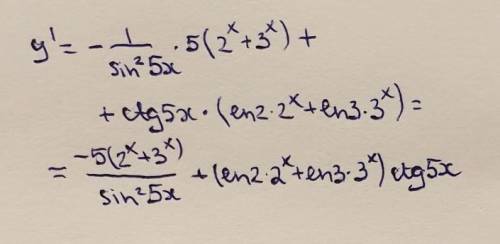 y' = - 1/sin²5x · 5(2ˣ+3ˣ) +
+ ctg5x · (ln2·2ˣ+ln3·3ˣ) =
= -5(2ˣ+3ˣ)/sin²5x + (ln2·2ˣ+ln3·3ˣ) ctg5x